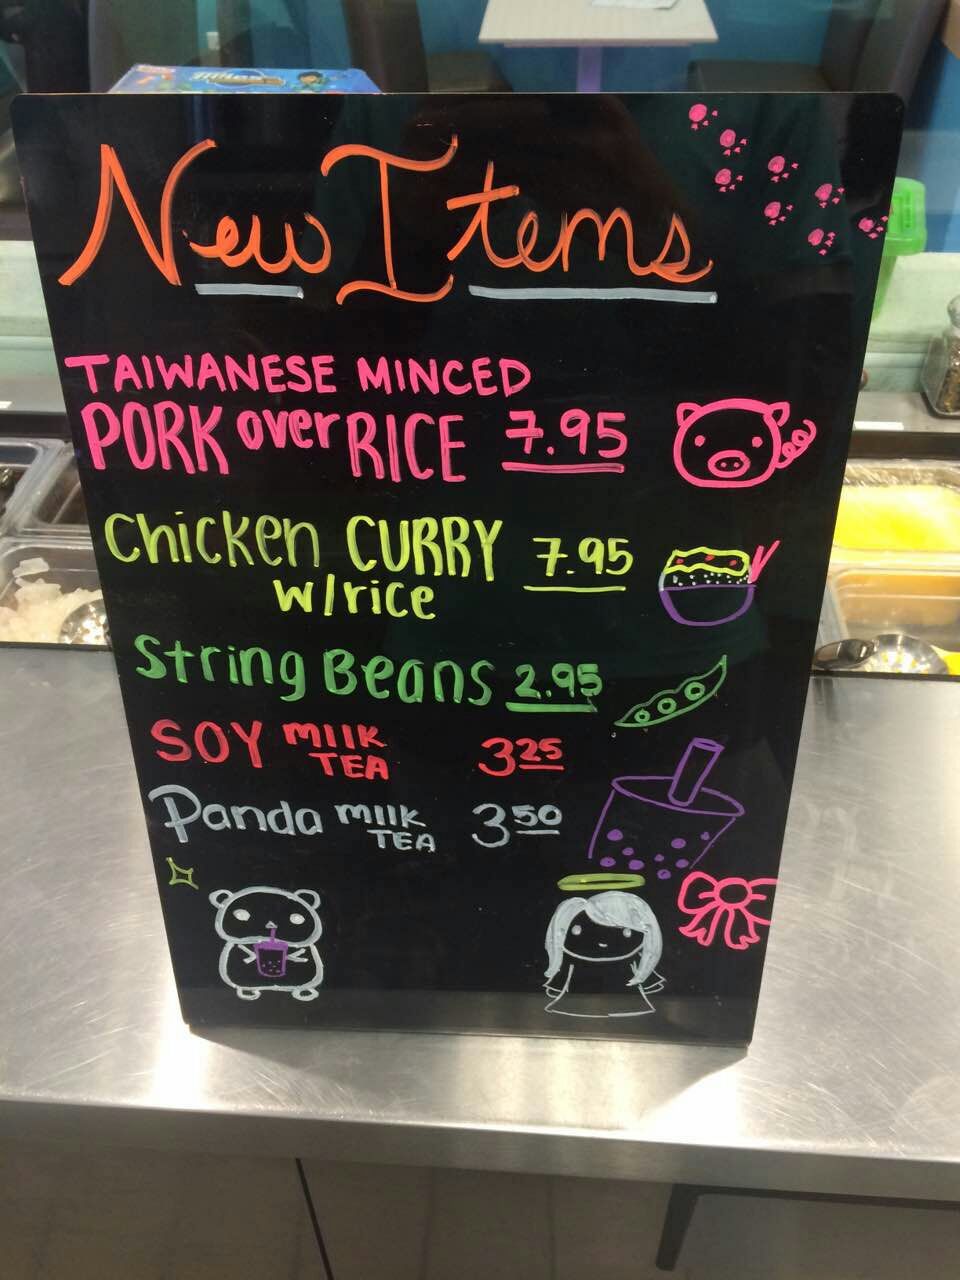 New Items
TAIWANESE MINCED
PORK over RICE 7.95
Chicken CURRY 7.95
w/rice
String Beans 2.95
SOY MIlK
TEA 3 25
Panda MIlK
TEA 3 50